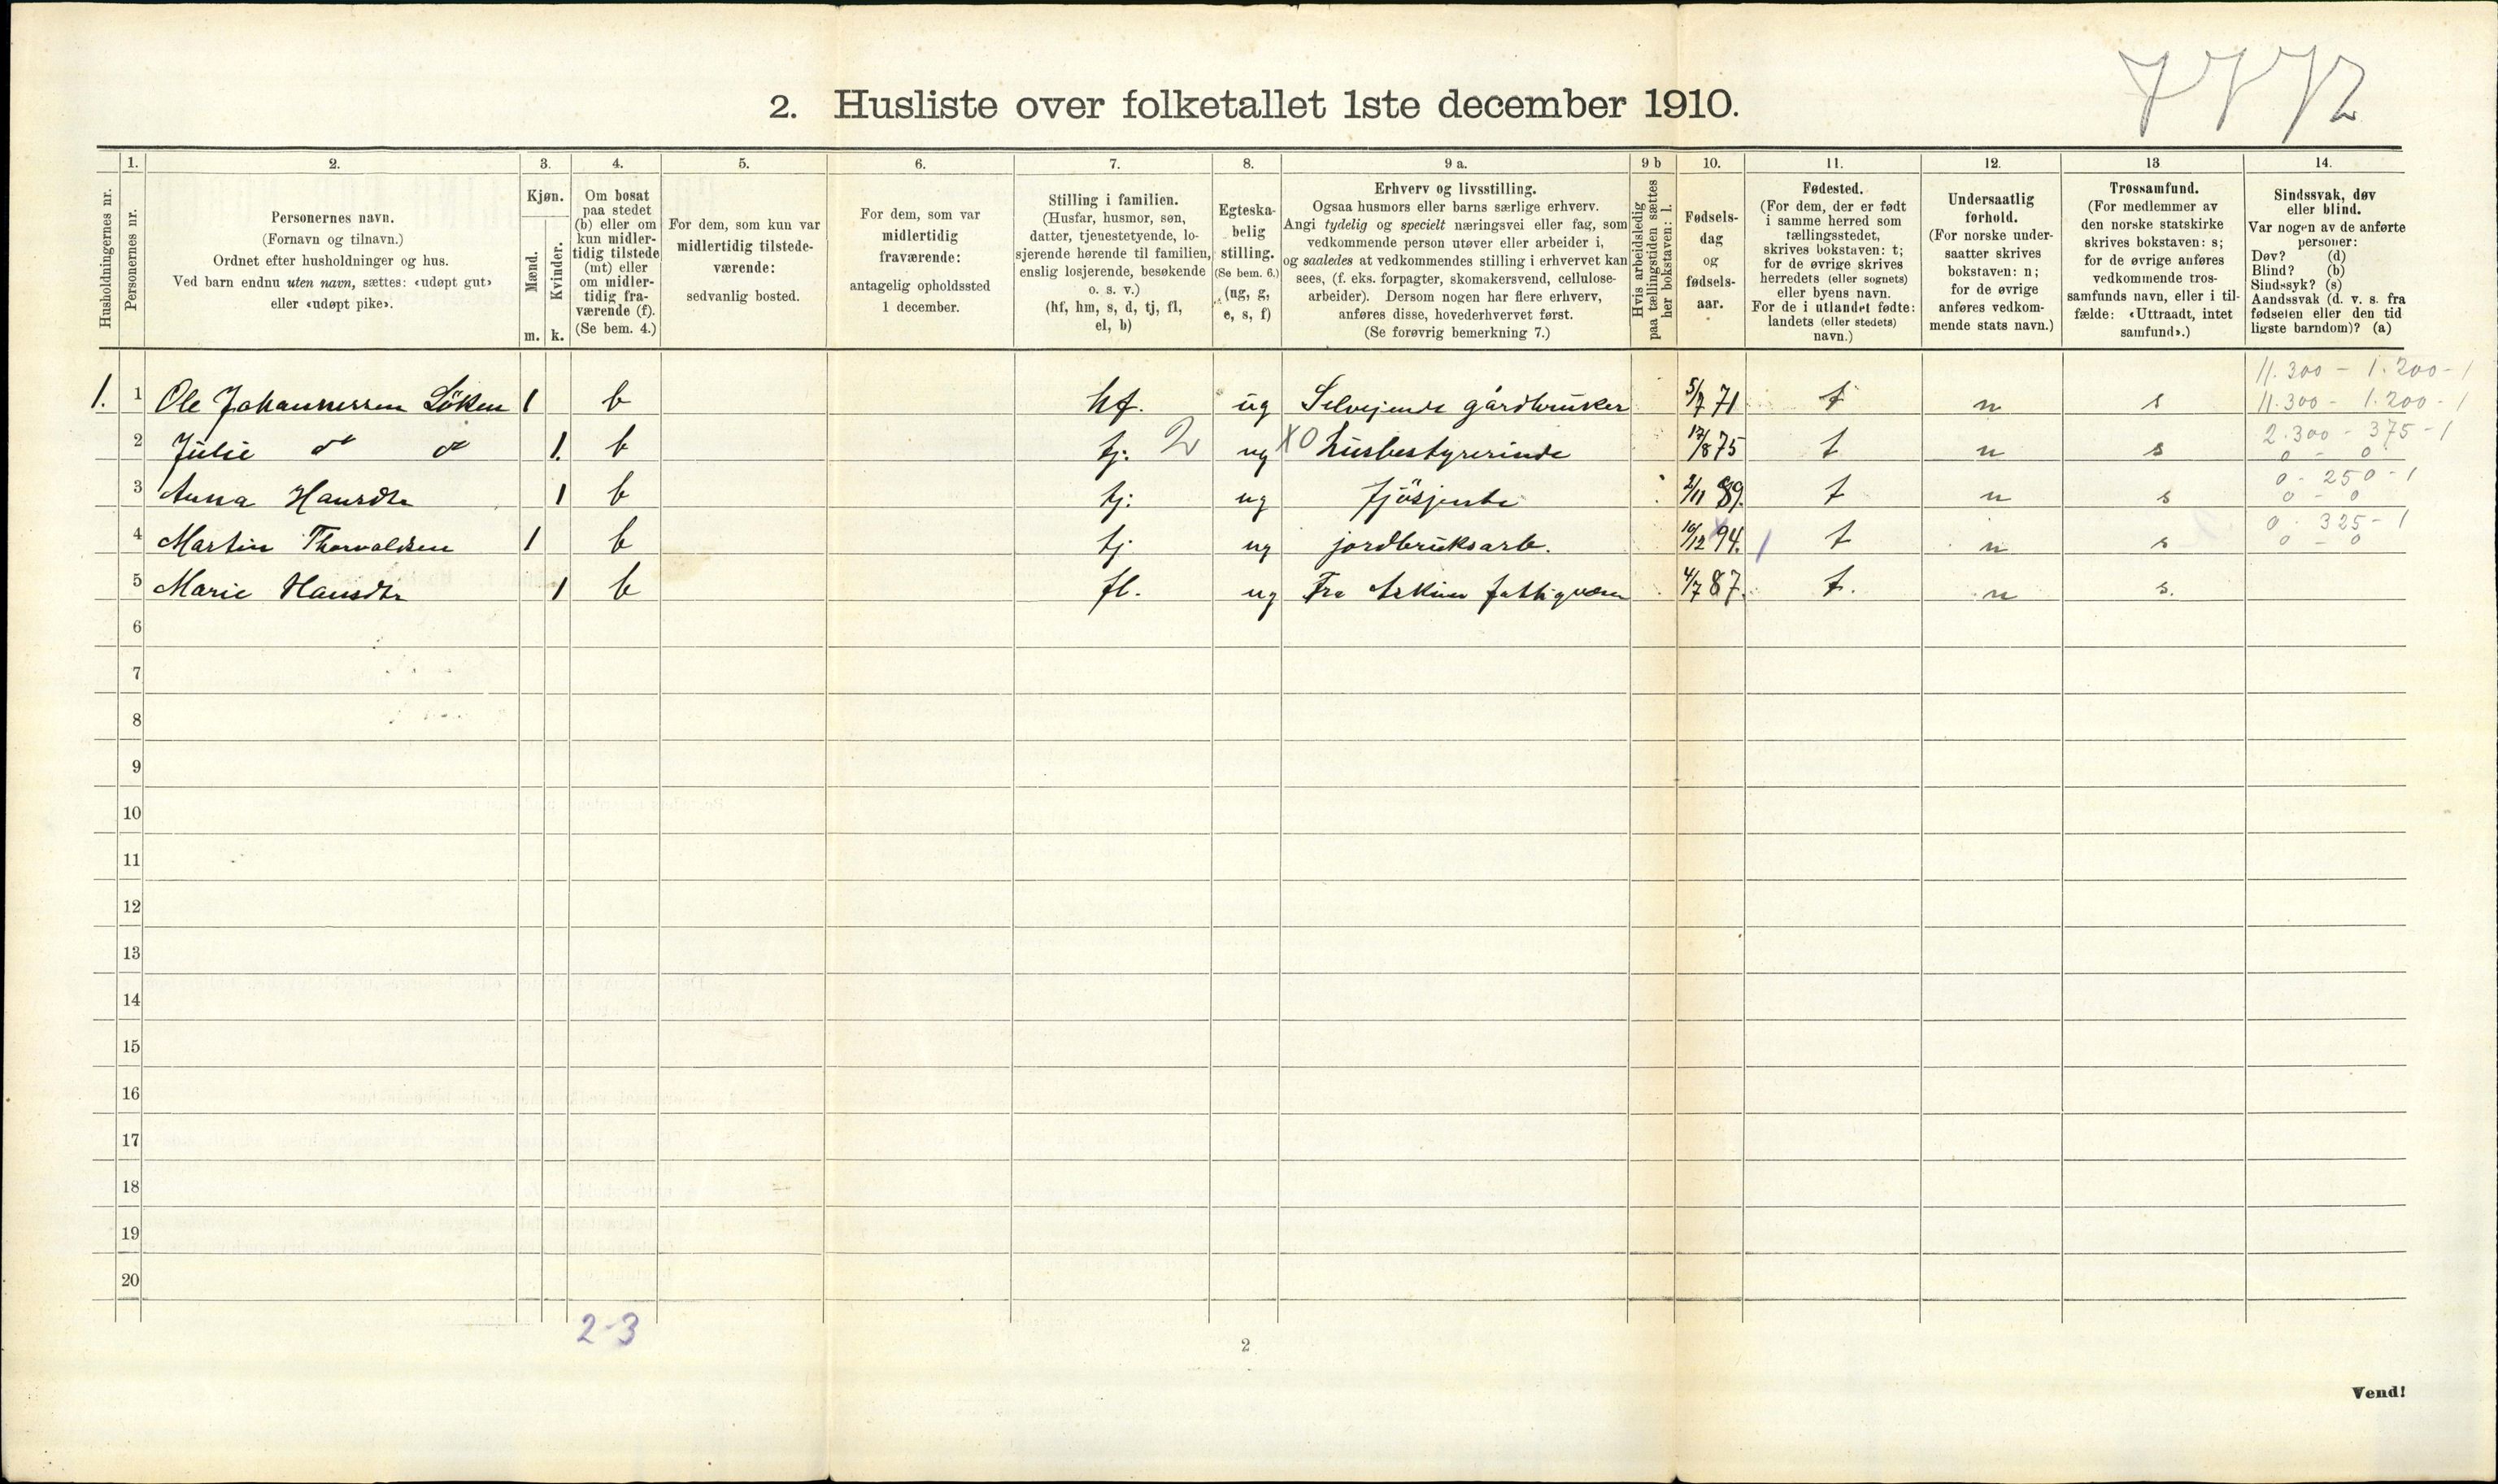 7772
2. Husliste over folketallet 1ste december 1910.
Husholdningernes nr.
1.
Personernes nr.
2.
Personernes navn.
(Fornavn og tilnavn.)
Ordnet efter husholdninger og hus.
Ved barn endnu uten navn, sættes: «udøpt gut»
eller «udøpt pike».
3.
Kjøn.
Mænd.
Kvinder.
m. k.
4.
Om bosat
paa stedet
(b) eller om
kun midler-
tidig tilstede
(mt) eller
om midler-
tidig fra-
værende (f).
(Se bem. 4.)
5.
For dem, som kun var
midlertidig tilstede-
værende:
sedvanlig bosted.
6.
For dem, som var
midlertidig
fraværende:
antagelig opholdssted
1 december.
7.
Stilling i familien.
(Husfar, husmor, søn,
datter, tjenestetyende, lo-
sjerende hørende til familien,
enslig losjerende, besøkende
o. s. v.)
(hf, hm, s, d, tj, fl,
el, b)
8.
Egteska-
belig
stilling.
(Se bem. 6.)
(ug, g,
e, s, f)
9 a.
Erhverv og livsstilling.
Ogsaa husmors eller barns særlige erhverv.
Angi tydelig og specielt næringsvei eller fag, som
vedkommende person utøver eller arbeider i,
og saaledes at vedkommendes stilling i erhvervet kan
sees, (f. eks. forpagter, skomakersvend, cellulose-
arbeider). Dersom nogen har flere erhverv,
anføres disse, hovederhvervet først.
(Se forøvrig bemerkning 7.)
9 b
Hvis arbeidsledig
paa tællingstiden sættes
her bokstaven: l.
10.
Fødsels-
dag
og
fødsels-
aar.
11.
Fødested.
(For dem, der er født
i samme herred som
tællingsstedet,
skrives bokstaven: t;
for de øvrige skrives
herredets (eller sognets)
eller byens navn.
For de i utlandet fødte:
landets (eller stedets)
navn.)
12.
Undersaatlig
forhold.
(For norske under-
saatter skrives
bokstaven: n;
for de øvrige
anføres vedkom-
mende stats navn.)
13
Trossamfund.
(For medlemmer av
den norske statskirke
skrives bokstaven: s;
for de øvrige anføres
vedkommende tros-
samfunds navn, eller i til-
fælde: «Uttraadt, intet
samfund».)
14.
Sindssvak, døv
eller blind.
Var nogen av de anførte
personer:
Døv? (d)
Blind? (b)
Sindssyk? (s)
Aandssvak (d. v. s. fra
fødselen eller den tid
ligste barndom)? (a)
11.300 - 1.200 - 1
1. 1 Ole Johannessen Löken 1 b hf. ug Selvejende gårdbruker 5/7 71 t n s 11.300 - 1.200 - 1
2.300 - 375 - 1
2 Julie do do 1. b tj. 2 ug X0 husbestyrerinde 17/8 75 t n s 0 - 0
0 - 250 - 1
3 Anna Hansdtr 1 b tj: ug fjösjente 2/11 89. t n s 0 - 0
0 - 325 - 1
4 Martin Thorvaldsen 1 b tj ug jordbruksarb. 10/12 94. 1 t n s 0 - 0
5 Marie Hansdtr 1 b fl. ug Fra Askim fattigvæsen 4/7 87. t. n s.
6
7
8
9
10
11
12
13
14
15
16
17
18
19
20
2-3
2
Vend!